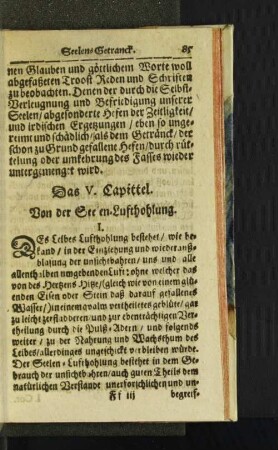 Seelen-Getranck. 85
nen Glauben und göttlichem Worte woll
abgefaßeten Troost Reden und Schriften
zu beobachten. Denen der durch die Selbst-
Verleugnung und Befridigung unserer
Seelen/ abgesonderte Hefen der Zeitligkeit/
und irdischen Ergetzungen / eben so unge-
reimt und schädlich/ als dem Getränck/ der
schon zu Grund gefallene Hefen/ durch rüt-
telung oder umkehrung des Fasses wieder
untergemenget wird.
Das V. Capittel.
Von der Seelen-Lufthohlung.
I.
DEs Leibes Lufthohlung bestehet/ wie be-
kand / in der Einziehung und wieder auß-
blasung der unsichtbahren / uns und alle
allenthalben umgebenden Luft: ohne welcher das
von des Hertzens Hitze/ (gleich wie von einem glü-
enden Eisen oder Stein daß darauf gefallenes
Wasser/) in einem qvalm vertheiletes geblüte/ gar
zu leicht zerfladderen und zur ebenträchtigen Ver-
theilung durch die Pulß-Adern / und folgends
weiter / zu der Nahrung und Wachsthum des
Leibes/ allerdinges ungeschickt verbleiben würde.
Der Seelen-Lufthohlung bestehet in dem Ge-
brauch der unsichtbahren/ auch guten Theils dem
natürlichen Verstande unerforschlichen und un-
Ff iij begreif-